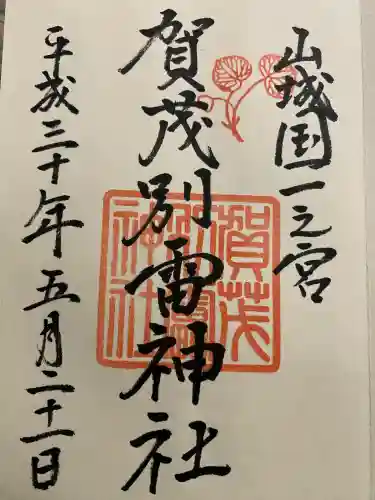 山城国一之宮
賀茂別雷神社
平成三十年五月二十一日
賀茂
別雷
神社